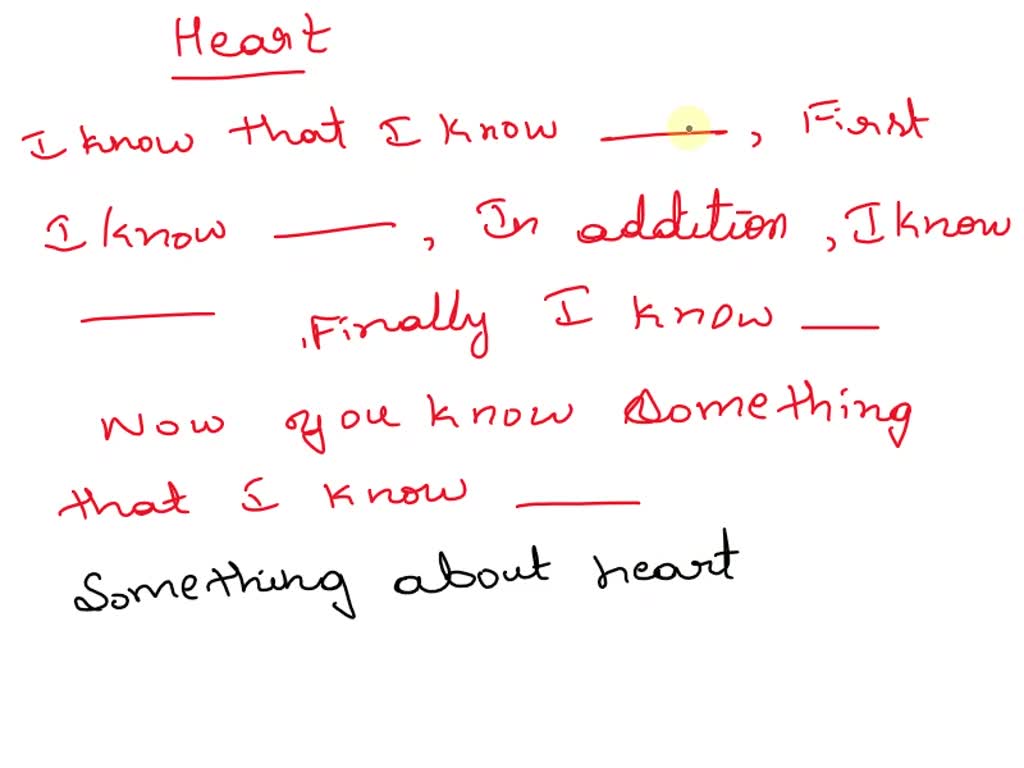 Heart
I know that I know ____, First
I know ____, In addition, I know
____ .Finally I know ____
Now you know something
that I know ____
Something about heart